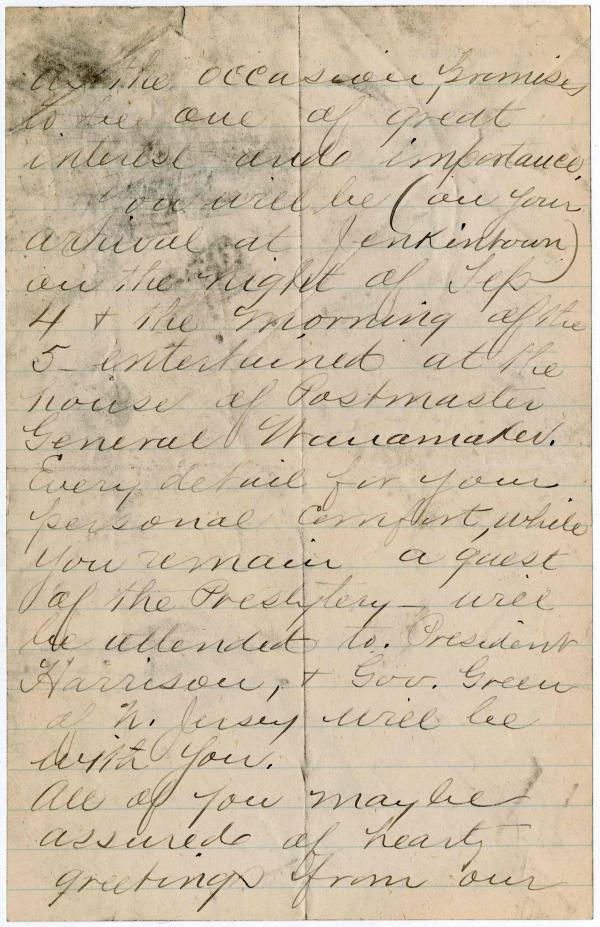 as the occasion promises
to be one of great
interest and importance.
You will be (on your
arrival at Jenkintown)
on the night of Sep
4 & the morning of the
5 - entertained at the
house of Postmaster
General Wanamaker.
Every detail for your
personal comfort, while
you remain a guest
of the Presbytery - will
be attended to. President
Harrison, & Gov. Green
of N. Jersey will be
with you.
All of you may be
assured of hearty
greetings from our